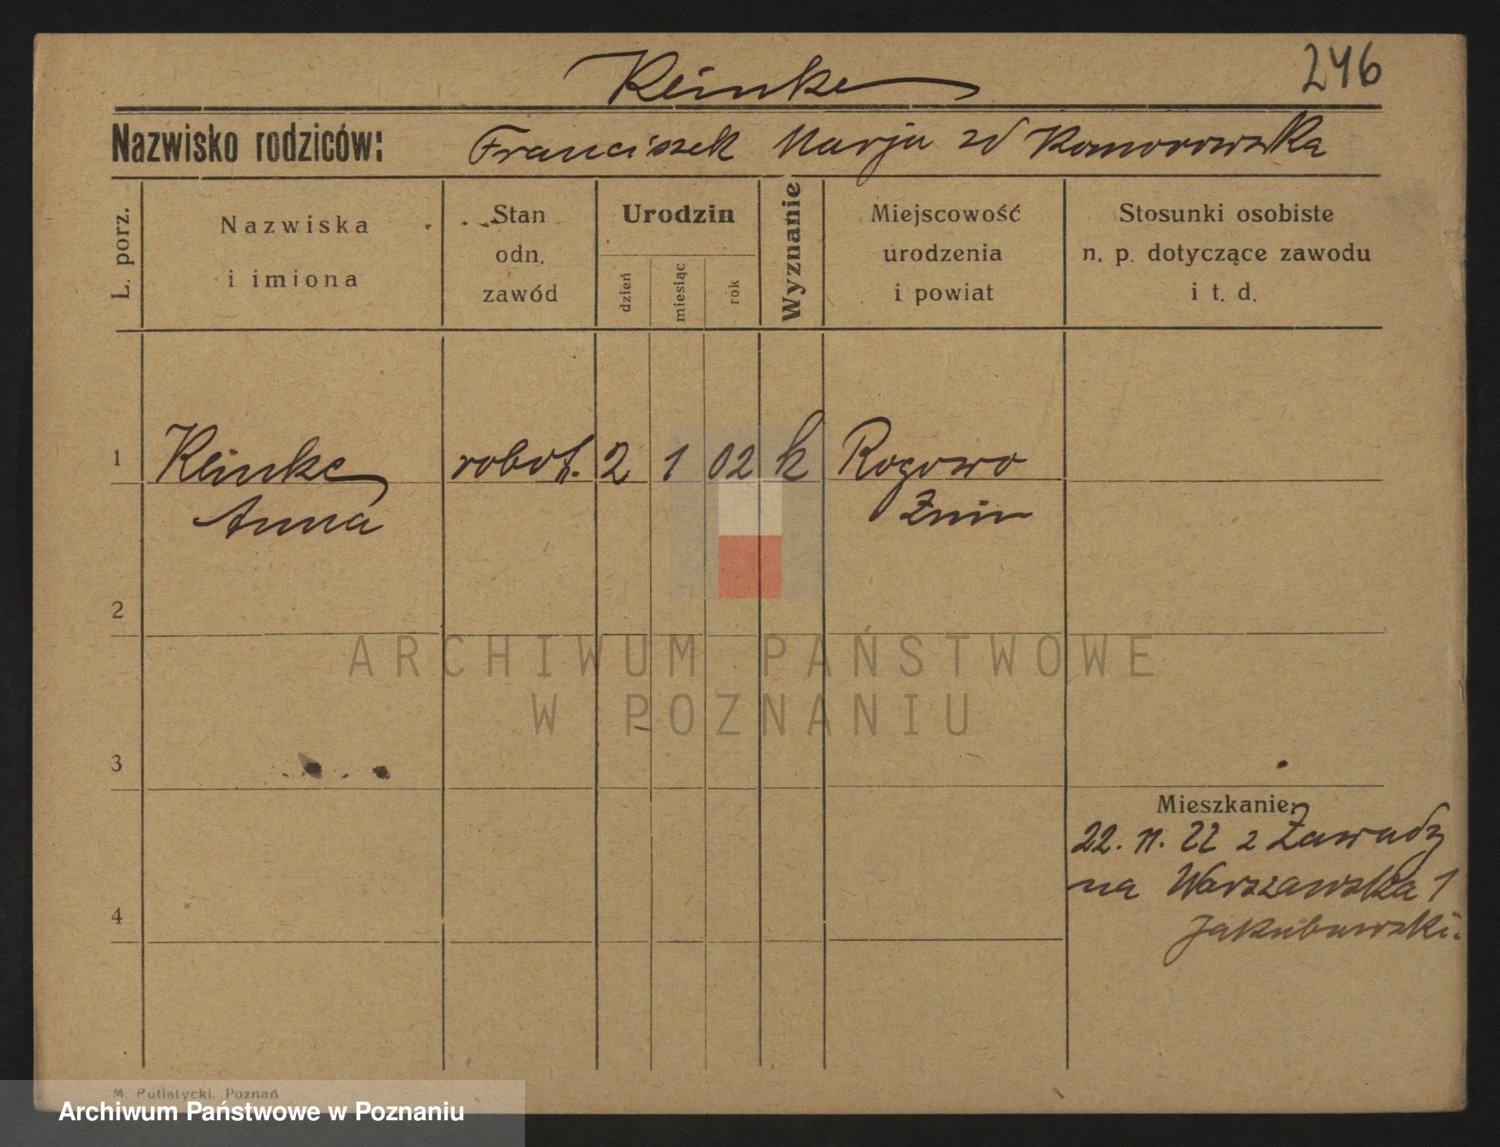 246
Reinke
Nazwisko rodziców: Franciszek Marja zd Komorowska
L. porz.
Nazwiska i imiona
Stan odn. zawód
Urodzin
dzień
miesiąc
rok
Wyznanie
Miejscowość urodzenia i powiat
Stosunki osobiste n. p. dotyczące zawodu i t. d.
1 Reinke robot. 2 1 02 k Rogowo
Anna Żnin
2
ARCHIWUM PAŃSTWOWE
W POZNANIU
3
Mieszkanie:
22. 11. 22 z Zawady
na Warszawska 1
Jakubowski.
4
M. Putiatycki, Poznań
Archiwum Państwowe w Poznaniu